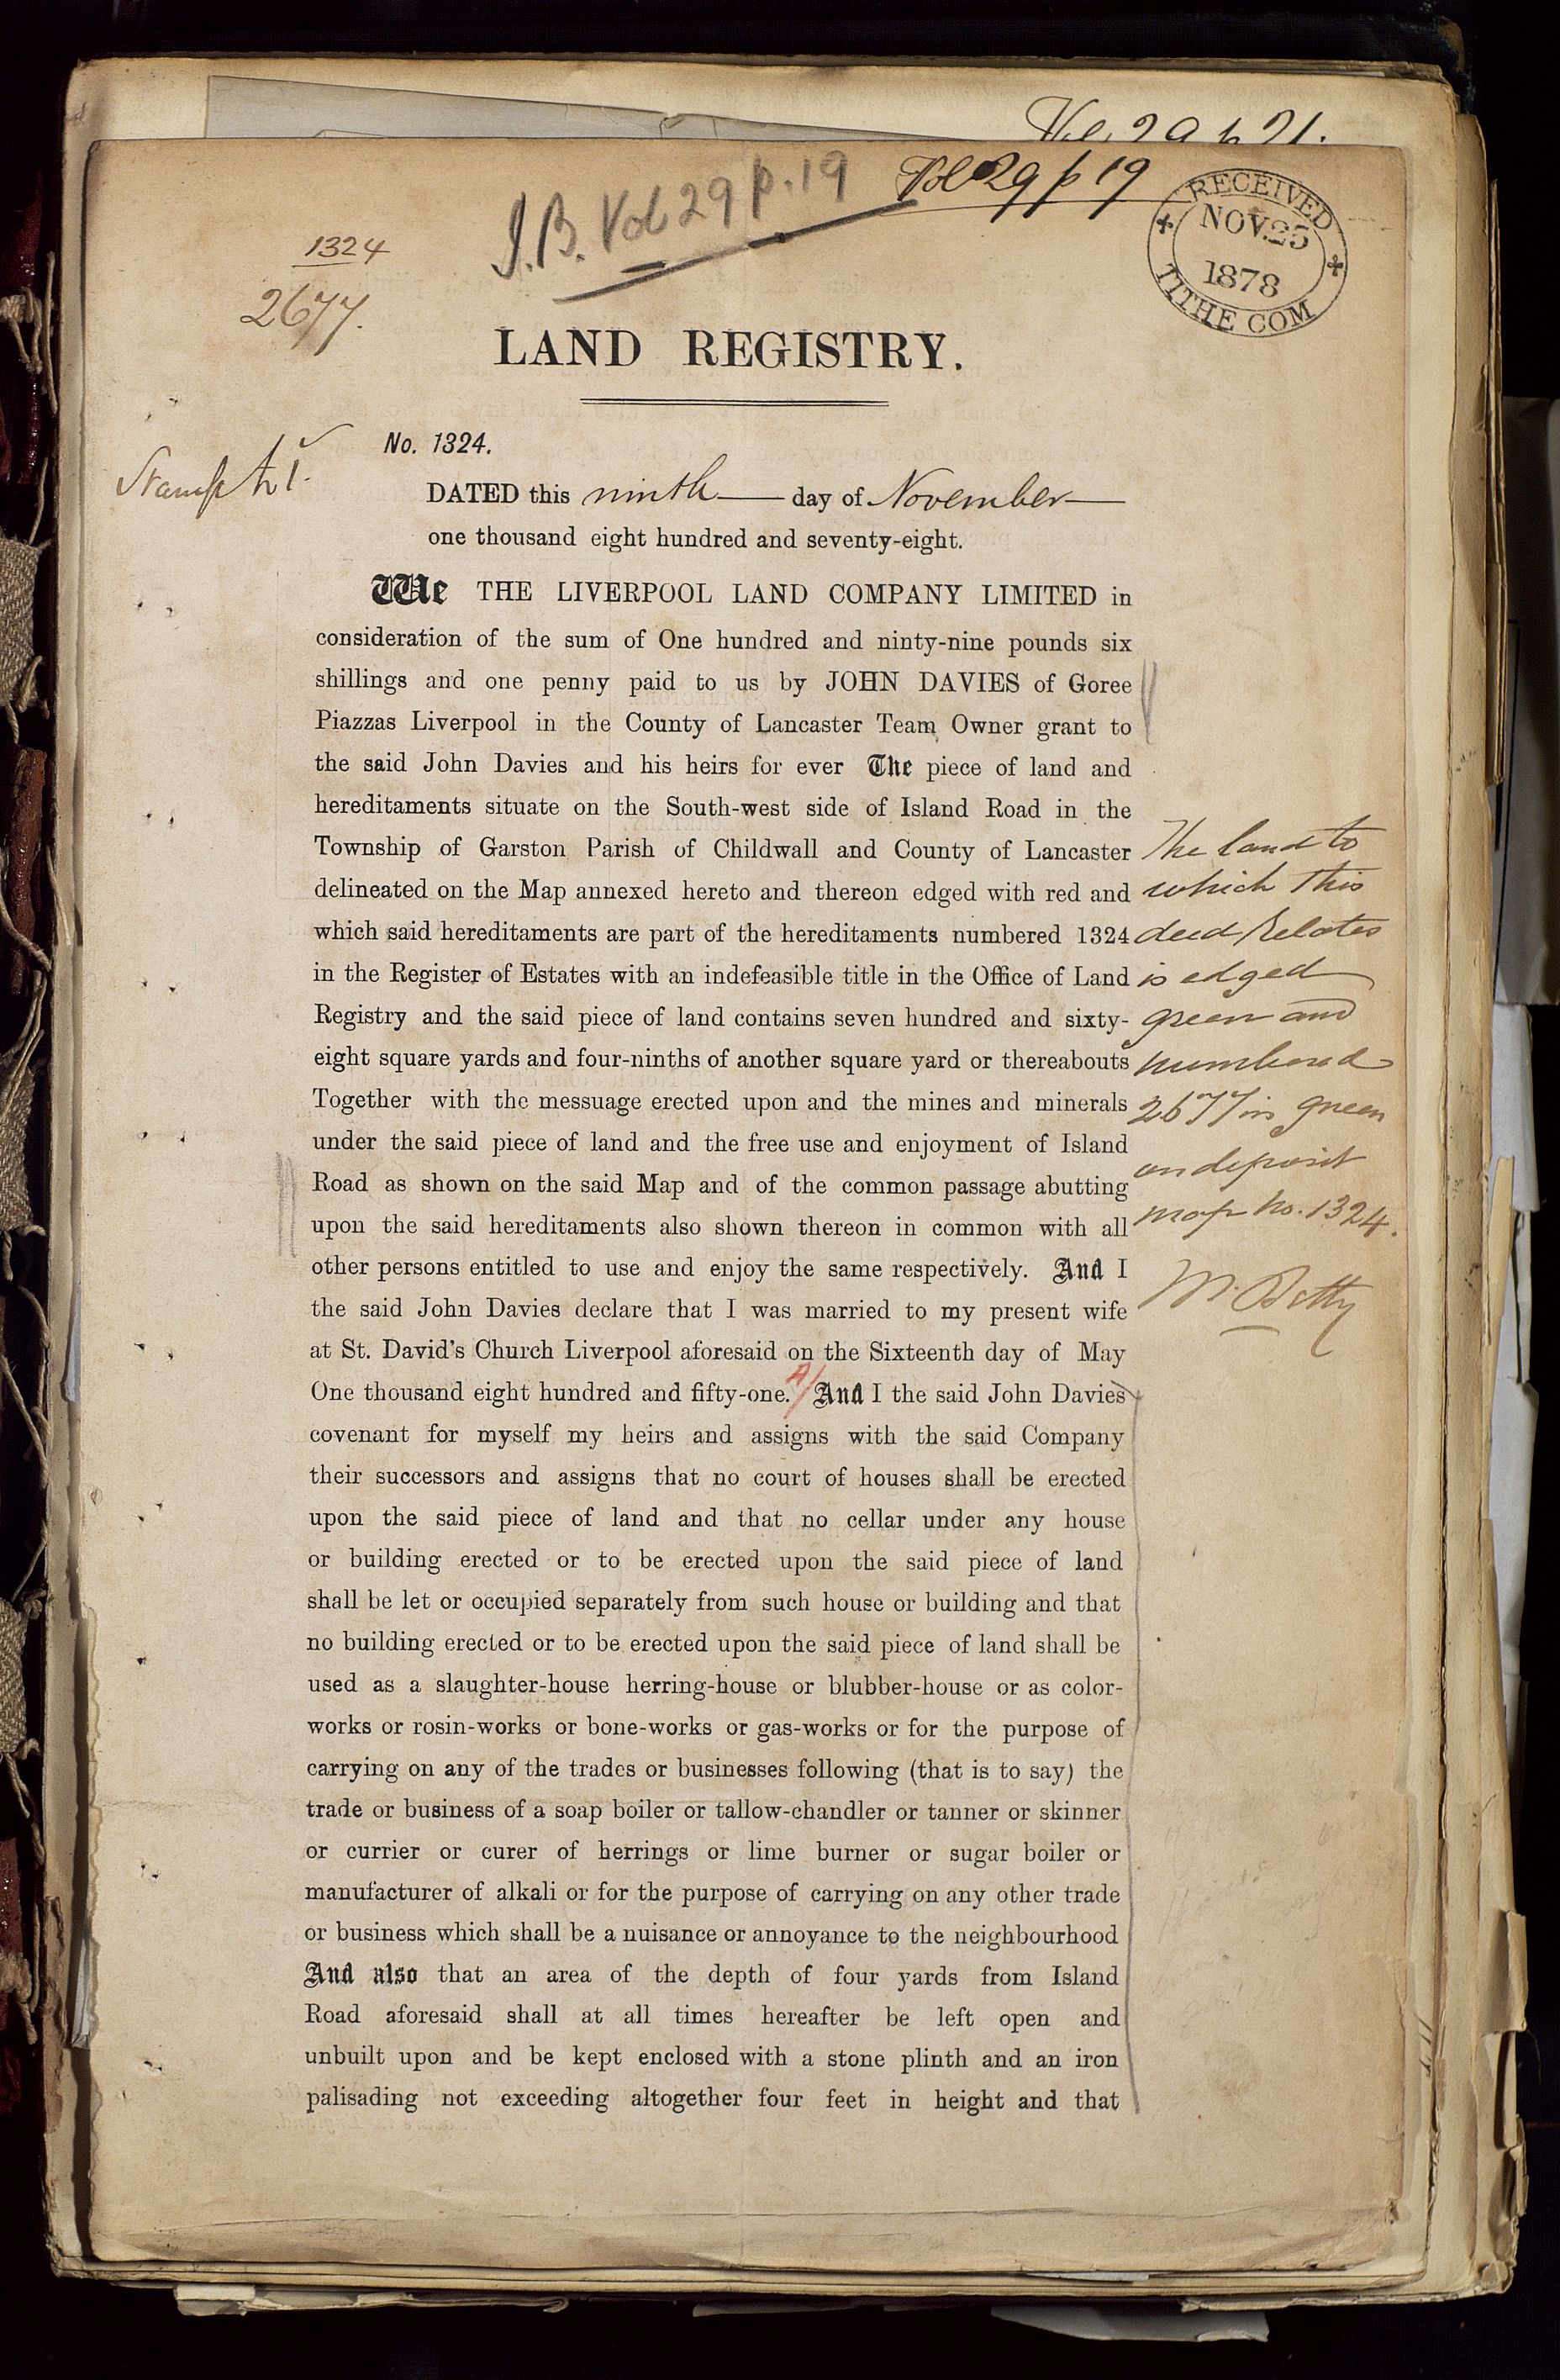 Vol 29 p 21.
J.B. Vol 29 p. 19
Vol 29 p 19
RECEIVED
NOV. 25
1878
TITHE COM
1324
2677.
LAND REGISTRY.
No. 1324.
Stamp
DATED this ninth day of November
one thousand eight hundred and seventy-eight.
We THE LIVERPOOL LAND COMPANY LIMITED in
consideration of the sum of One hundred and ninty-nine pounds six
shillings and one penny paid to us by JOHN DAVIES of Goree
Piazzas Liverpool in the County of Lancaster Team Owner grant to
the said John Davies and his heirs for ever The piece of land and
hereditaments situate on the South-west side of Island Road in the
Township of Garston Parish of Childwall and County of Lancaster
delineated on the Map annexed hereto and thereon edged with red and
which said hereditaments are part of the hereditaments numbered 1324
in the Register of Estates with an indefeasible title in the Office of Land
Registry and the said piece of land contains seven hundred and sixty-
eight square yards and four-ninths of another square yard or thereabouts
Together with the messuage erected upon and the mines and minerals
under the said piece of land and the free use and enjoyment of Island
Road as shown on the said Map and of the common passage abutting
upon the said hereditaments also shown thereon in common with all
other persons entitled to use and enjoy the same respectively. And I
the said John Davies declare that I was married to my present wife
at St. David's Church Liverpool aforesaid on the Sixteenth day of May
One thousand eight hundred and fifty-one. A/ And I the said John Davies
covenant for myself my heirs and assigns with the said Company
their successors and assigns that no court of houses shall be erected
upon the said piece of land and that no cellar under any house
or building erected or to be erected upon the said piece of land
shall be let or occupied separately from such house or building and that
no building erected or to be erected upon the said piece of land shall be
used as a slaughter-house herring-house or blubber-house or as color-
works or rosin-works or bone-works or gas-works or for the purpose of
carrying on any of the trades or businesses following (that is to say) the
trade or business of a soap boiler or tallow-chandler or tanner or skinner
or currier or curer of herrings or lime burner or sugar boiler or
manufacturer of alkali or for the purpose of carrying on any other trade
or business which shall be a nuisance or annoyance to the neighbourhood
And also that an area of the depth of four yards from Island
Road aforesaid shall at all times hereafter be left open and
unbuilt upon and be kept enclosed with a stone plinth and an iron
palisading not exceeding altogether four feet in height and that
The land to
which this
deed relates
is edged
green and
numbered
2677 in green
on deposit
map No. 1324.